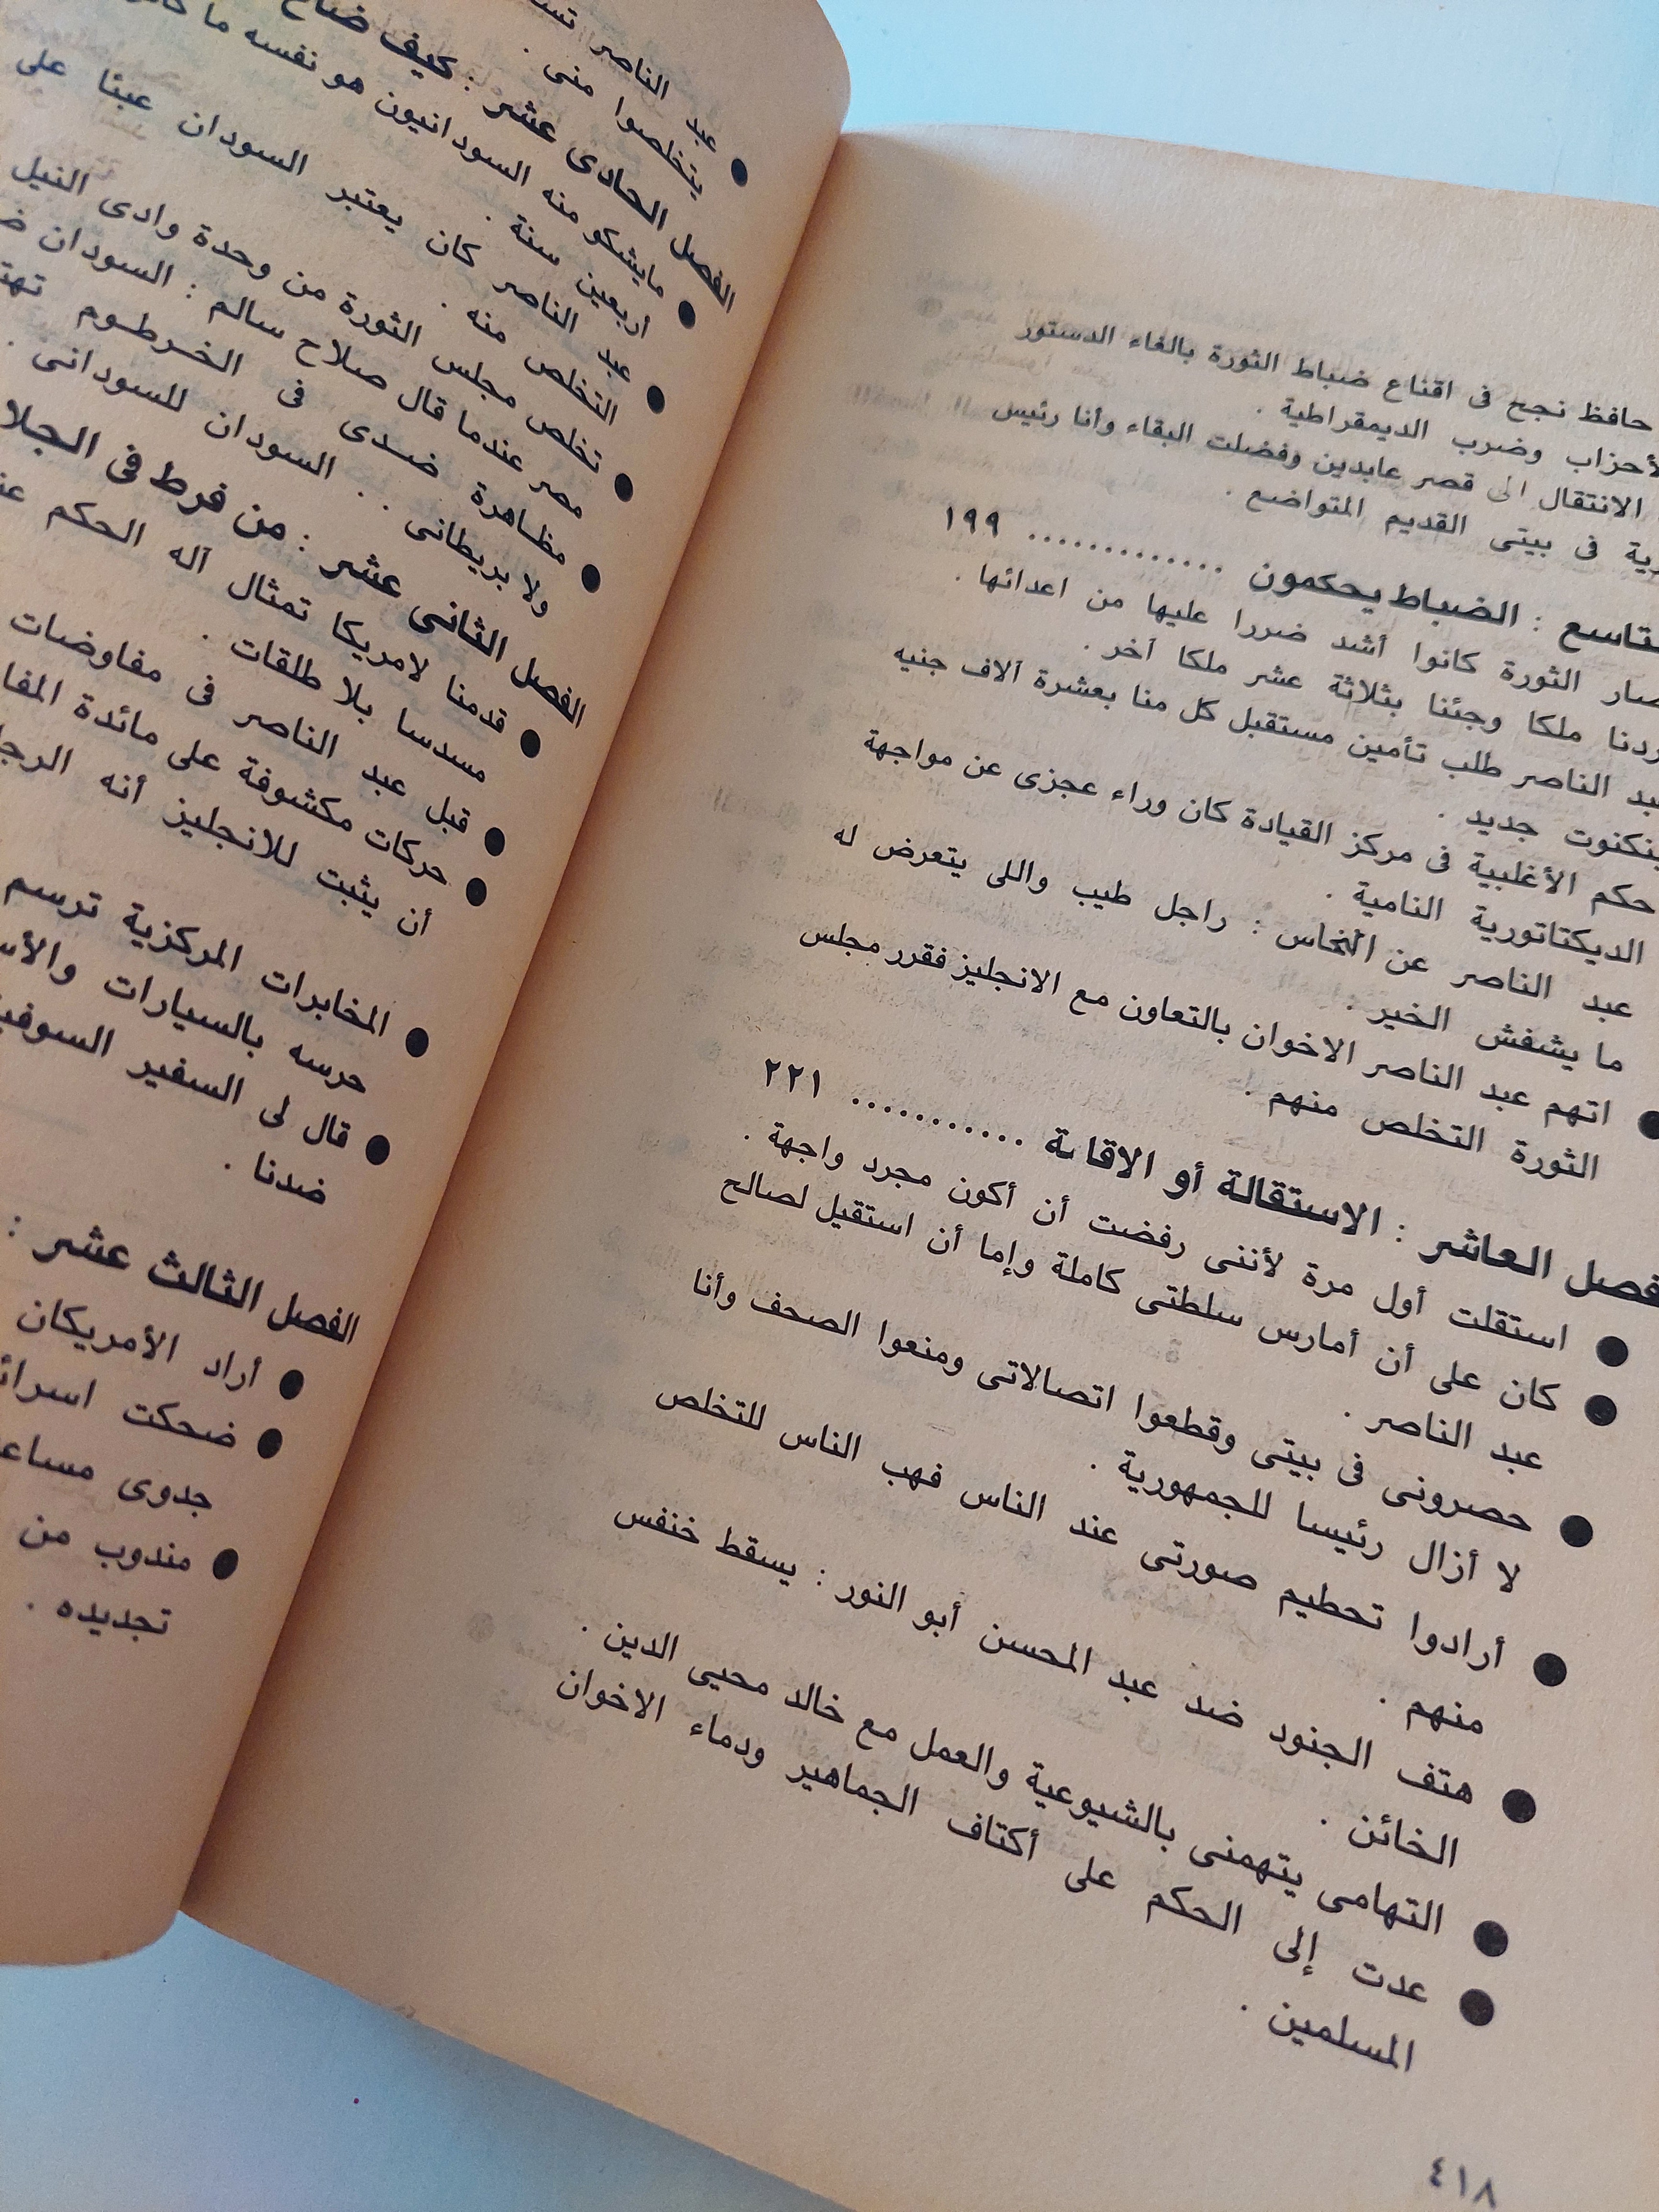 حافظ نجح فى اقناع ضباط الثورة بالغاء الدستور
الأحزاب وضرب الديمقراطية .
الانتقال الى قصر عابدين وفضلت البقاء وأنا رئيس
فى بيتى القديم المتواضع .
التاسع : الضباط يحكمون ............. ١٩٩
الثورة كانوا أشد ضررا عليها من اعدائها .
ملكا وجئنا بثلاثة عشر ملكا آخر .
عبد الناصر طلب تأمين مستقبل كل منا بعشرة آلاف جنيه
بنكنوت جديد .
حكم الأغلبية فى مركز القيادة كان وراء عجزى عن مواجهة
الديكتاتورية النامية .
عبد الناصر عن النحاس : راجل طيب واللى يتعرض له
ما يشفش الخير .
● اتهم عبد الناصر الاخوان بالتعاون مع الانجليز فقرر مجلس
الثورة التخلص منهم .
الفصل العاشر : الاستقالة أو الاقالة ........... ٢٢١
● استقلت أول مرة لأننى رفضت أن أكون مجرد واجهة .
● كان على أن أمارس سلطتى كاملة وإما أن استقيل لصالح
عبد الناصر .
● حصرونى فى بيتى وقطعوا اتصالاتى ومنعوا الصحف وأنا
لا أزال رئيسا للجمهورية .
● أرادوا تحطيم صورتى عند الناس فهب الناس للتخلص
منهم .
● هتف الجنود ضد عبد المحسن أبو النور : يسقط خنفس
الخائن .
● التهامى يتهمنى بالشيوعية والعمل مع خالد محيى الدين .
● عدت إلى الحكم على أكتاف الجماهير ودماء الاخوان
المسلمين .
٤١٨
● عبد الناصر
يتخلصوا منى .
الفصل الحادى عشر : كيف ضاع
● مايشكو منه السودانيون هو نفسه ما
أربعين سنة .
● عبد الناصر كان يعتبر السودان عبئا على
التخلص منه .
● تخلص مجلس الثورة من وحدة وادى النيل
مصر عندما قال صلاح سالم : السودان
● مظاهرة ضدى فى الخرطوم
ولا بريطانى . . السودان للسودانى .
الفصل الثانى عشر : من فرط فى الجلاء
● قدمنا لامريكا تمثال آله الحكم
مسدسا بلا طلقات .
● قبل عبد الناصر فى مفاوضات
حركات مكشوفة على مائدة
● أن يثبت للانجليز أنه
● المخابرات المركزية ترسم
حرسه بالسيارات
● قال لى السفير
ضدنا .
الفصل الثالث عشر :
● أراد الأمريكان
● ضحكت
جدوى
● مندوب من
تجديده .